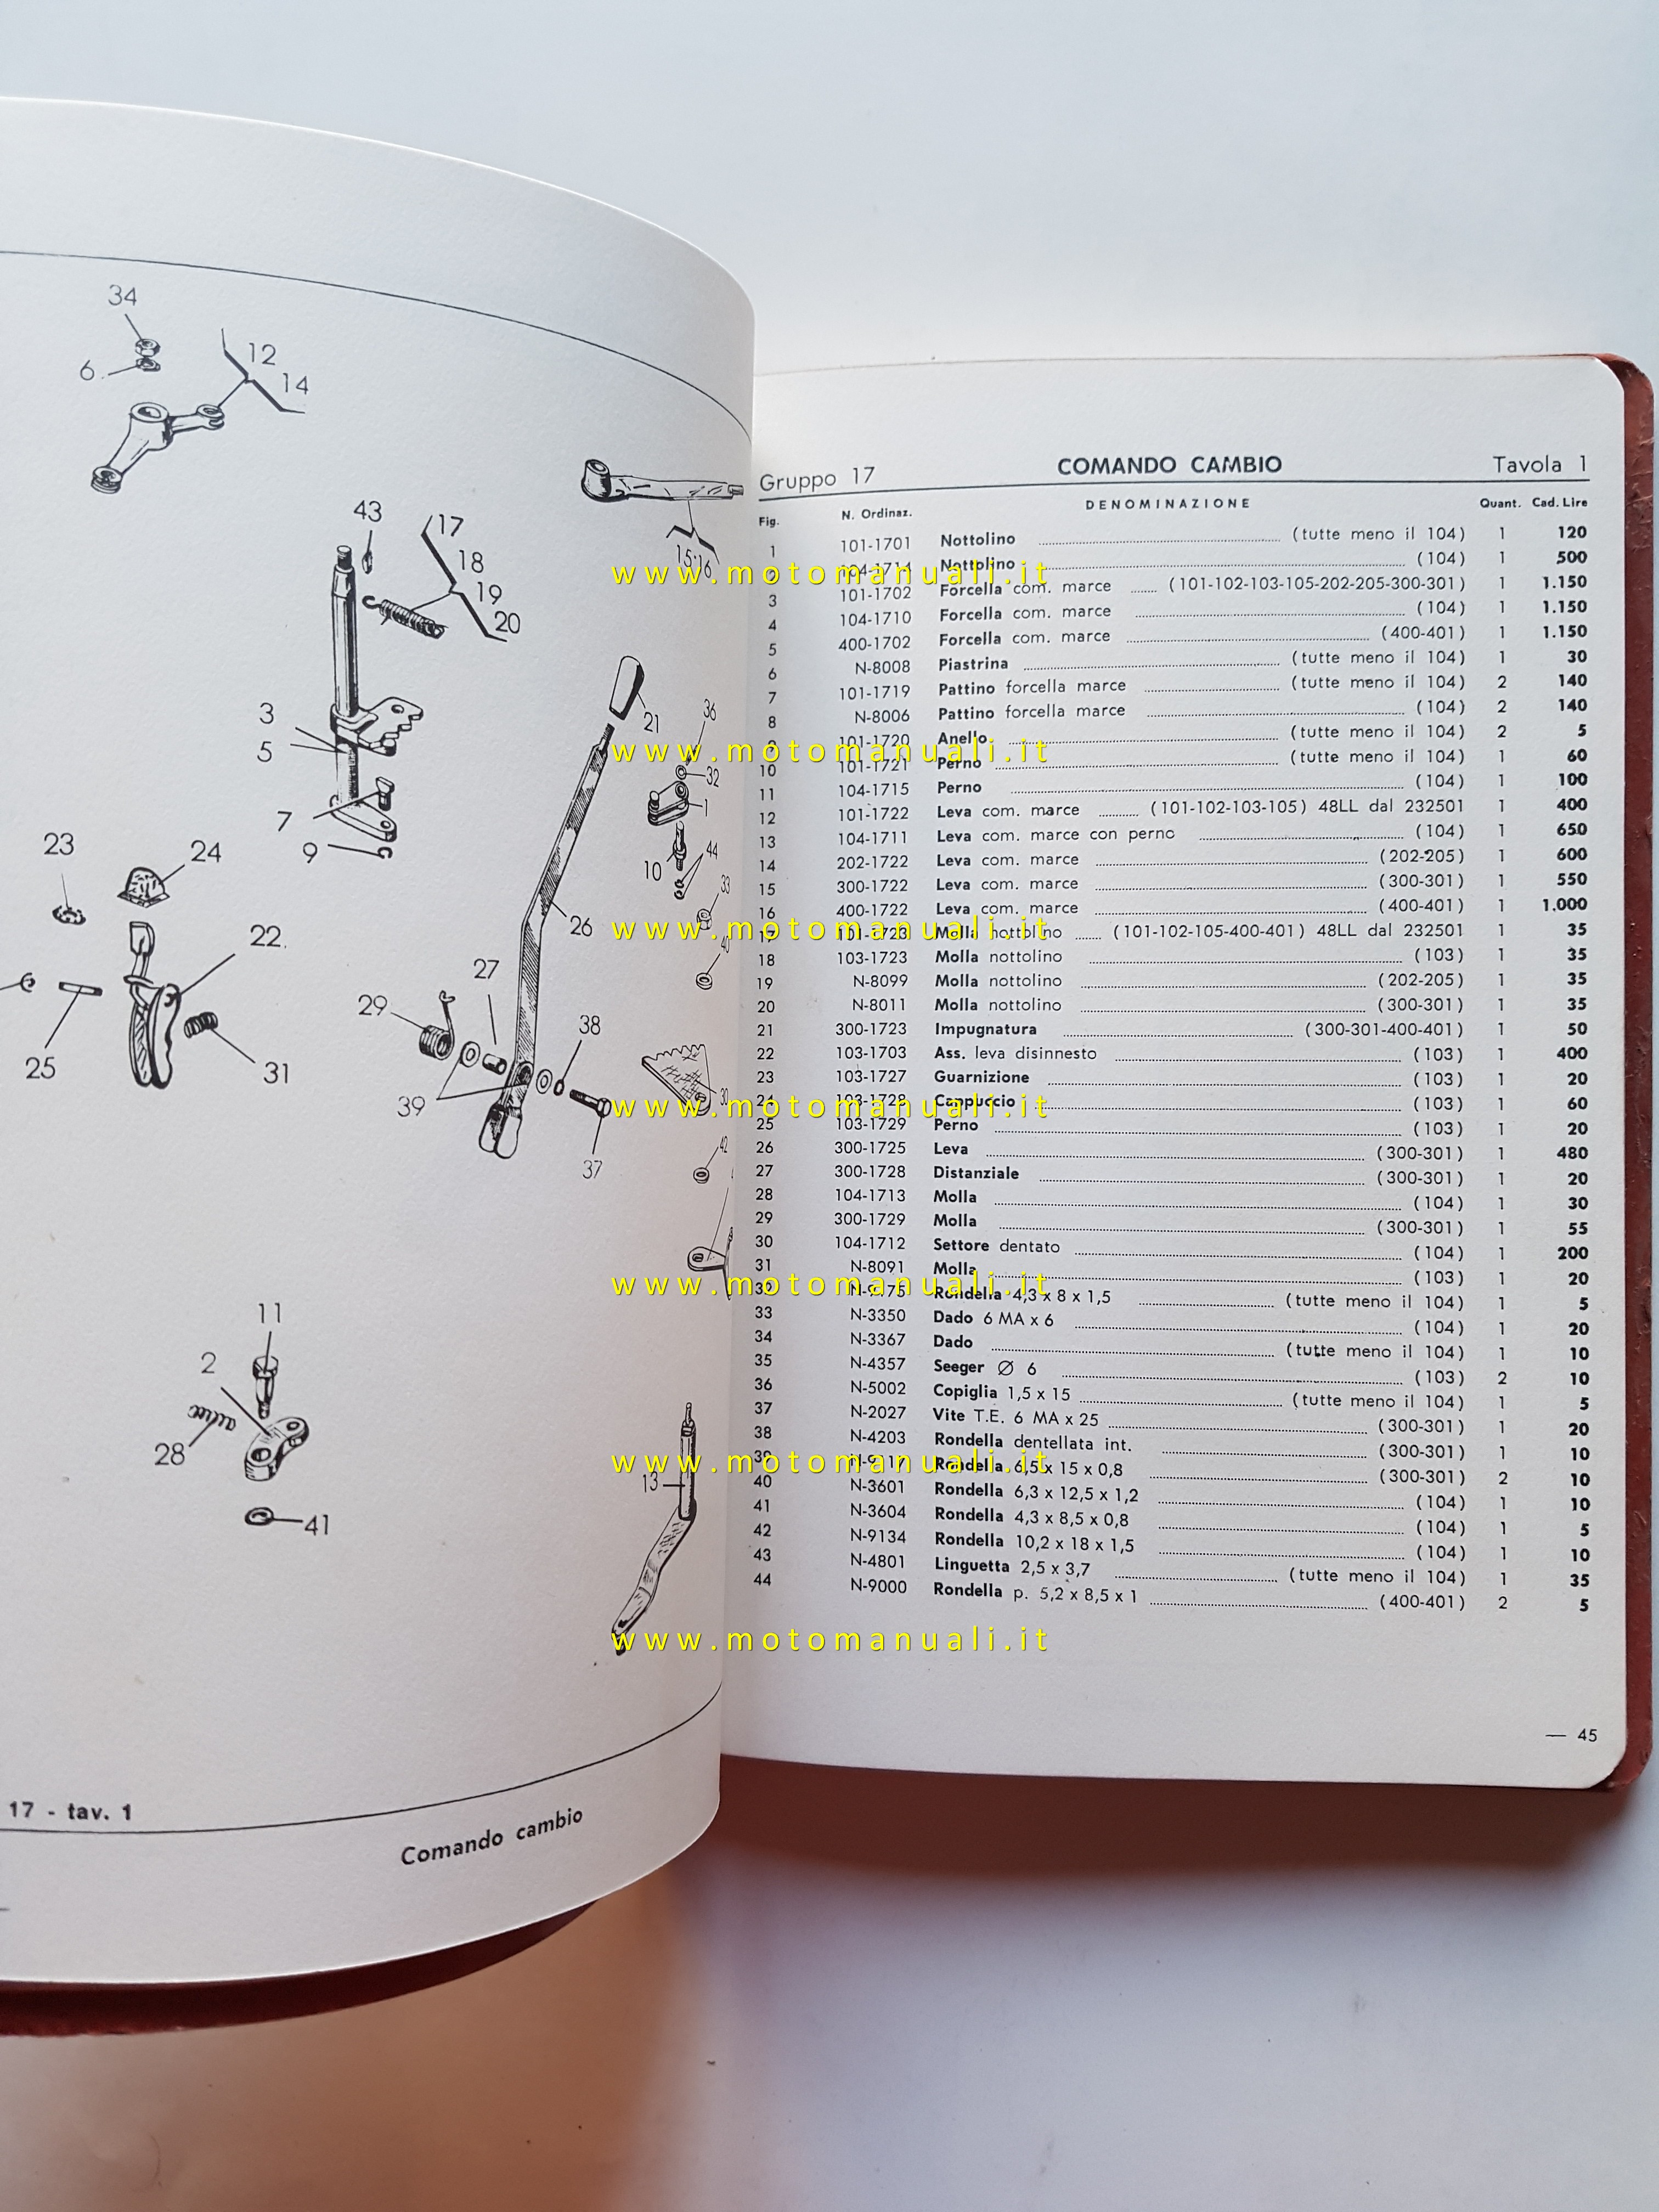 34
6.
12
14
43
17
18
19
20
15-16
3
5
7
9
21
36
32
1
10
44
33
40
23
24
22.
25
31
26
27
29
38
39
37
30
42
11
2
28
41
13
17 - tav. 1
Comando cambio
Gruppo 17 COMANDO CAMBIO Tavola 1
Fig. N. Ordinaz. DENOMINAZIONE Quant. Cad. Lire
1 101-1701 Nottolino (tutte meno il 104) 1 120
2 104-1714 Nottolino (104) 1 500
3 101-1702 Forcella com. marce (101-102-103-105-202-205-300-301) 1 1.150
4 104-1710 Forcella com. marce (104) 1 1.150
5 400-1702 Forcella com. marce (400-401) 1 1.150
6 N-8008 Piastrina (tutte meno il 104) 1 30
7 101-1719 Pattino forcella marce (tutte meno il 104) 2 140
8 N-8006 Pattino forcella marce (104) 2 140
9 101-1720 Anello (tutte meno il 104) 2 5
10 101-1721 Perno (tutte meno il 104) 1 60
11 104-1715 Perno (104) 1 100
12 101-1722 Leva com. marce (101-102-103-105) 48LL dal 232501 1 400
13 104-1711 Leva com. marce con perno (104) 1 650
14 202-1722 Leva com. marce (202-205) 1 600
15 300-1722 Leva com. marce (300-301) 1 550
16 400-1722 Leva com. marce (400-401) 1 1.000
17 101-1723 Molla nottolino (101-102-105-400-401) 48LL dal 232501 1 35
18 103-1723 Molla nottolino (103) 1 35
19 N-8099 Molla nottolino (202-205) 1 35
20 N-8011 Molla nottolino (300-301) 1 35
21 300-1723 Impugnatura (300-301-400-401) 1 50
22 103-1703 Ass. leva disinnesto (103) 1 400
23 103-1727 Guarnizione (103) 1 20
24 103-1728 Cappuccio (103) 1 60
25 103-1729 Perno (103) 1 20
26 300-1725 Leva (300-301) 1 480
27 300-1728 Distanziale (300-301) 1 20
28 104-1713 Molla (104) 1 30
29 300-1729 Molla (300-301) 1 55
30 104-1712 Settore dentato (104) 1 200
31 N-8091 Molla (103) 1 20
32 Rondella 4,3 x 8 x 1,5 (tutte meno il 104) 1 5
33 N-3350 Dado 6 MA x 6 (104) 1 20
34 N-3367 Dado (tutte meno il 104) 1 10
35 N-4357 Seeger Ø 6 (103) 2 10
36 N-5002 Copiglia 1,5 x 15 (tutte meno il 104) 1 5
37 N-2027 Vite T.E. 6 MA x 25 (300-301) 1 20
38 N-4203 Rondella dentellata int. (300-301) 1 10
39 Rondella 6,5 x 15 x 0,8 (300-301) 2 10
40 N-3601 Rondella 6,3 x 12,5 x 1,2 (104) 1 10
41 N-3604 Rondella 4,3 x 8,5 x 0,8 (104) 1 5
42 N-9134 Rondella 10,2 x 18 x 1,5 (104) 1 10
43 N-4801 Linguetta 2,5 x 3,7 (tutte meno il 104) 1 35
44 N-9000 Rondella p. 5,2 x 8,5 x 1 (400-401) 2 5
— 45
www.motomanuali.it
www.motomanuali.it
www.motomanuali.it
www.motomanuali.it
www.motomanuali.it
www.motomanuali.it
www.motomanuali.it